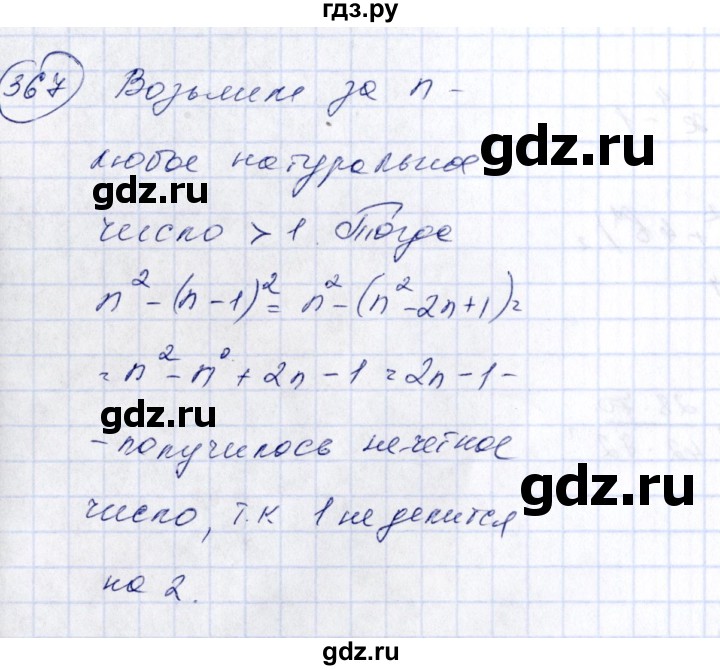 гдз.ру
367 Возьмем за n -
любое натуральное
gdz.ru
число > 1. Тогда
n² - (n - 1)² = n² - (n² - 2n + 1) =
= n² - n² + 2n - 1 = 2n - 1 -
gdz.ru
- получилось нечетное
gdz.ru
число, т.к 1 не делится
на 2.
gdz.ru